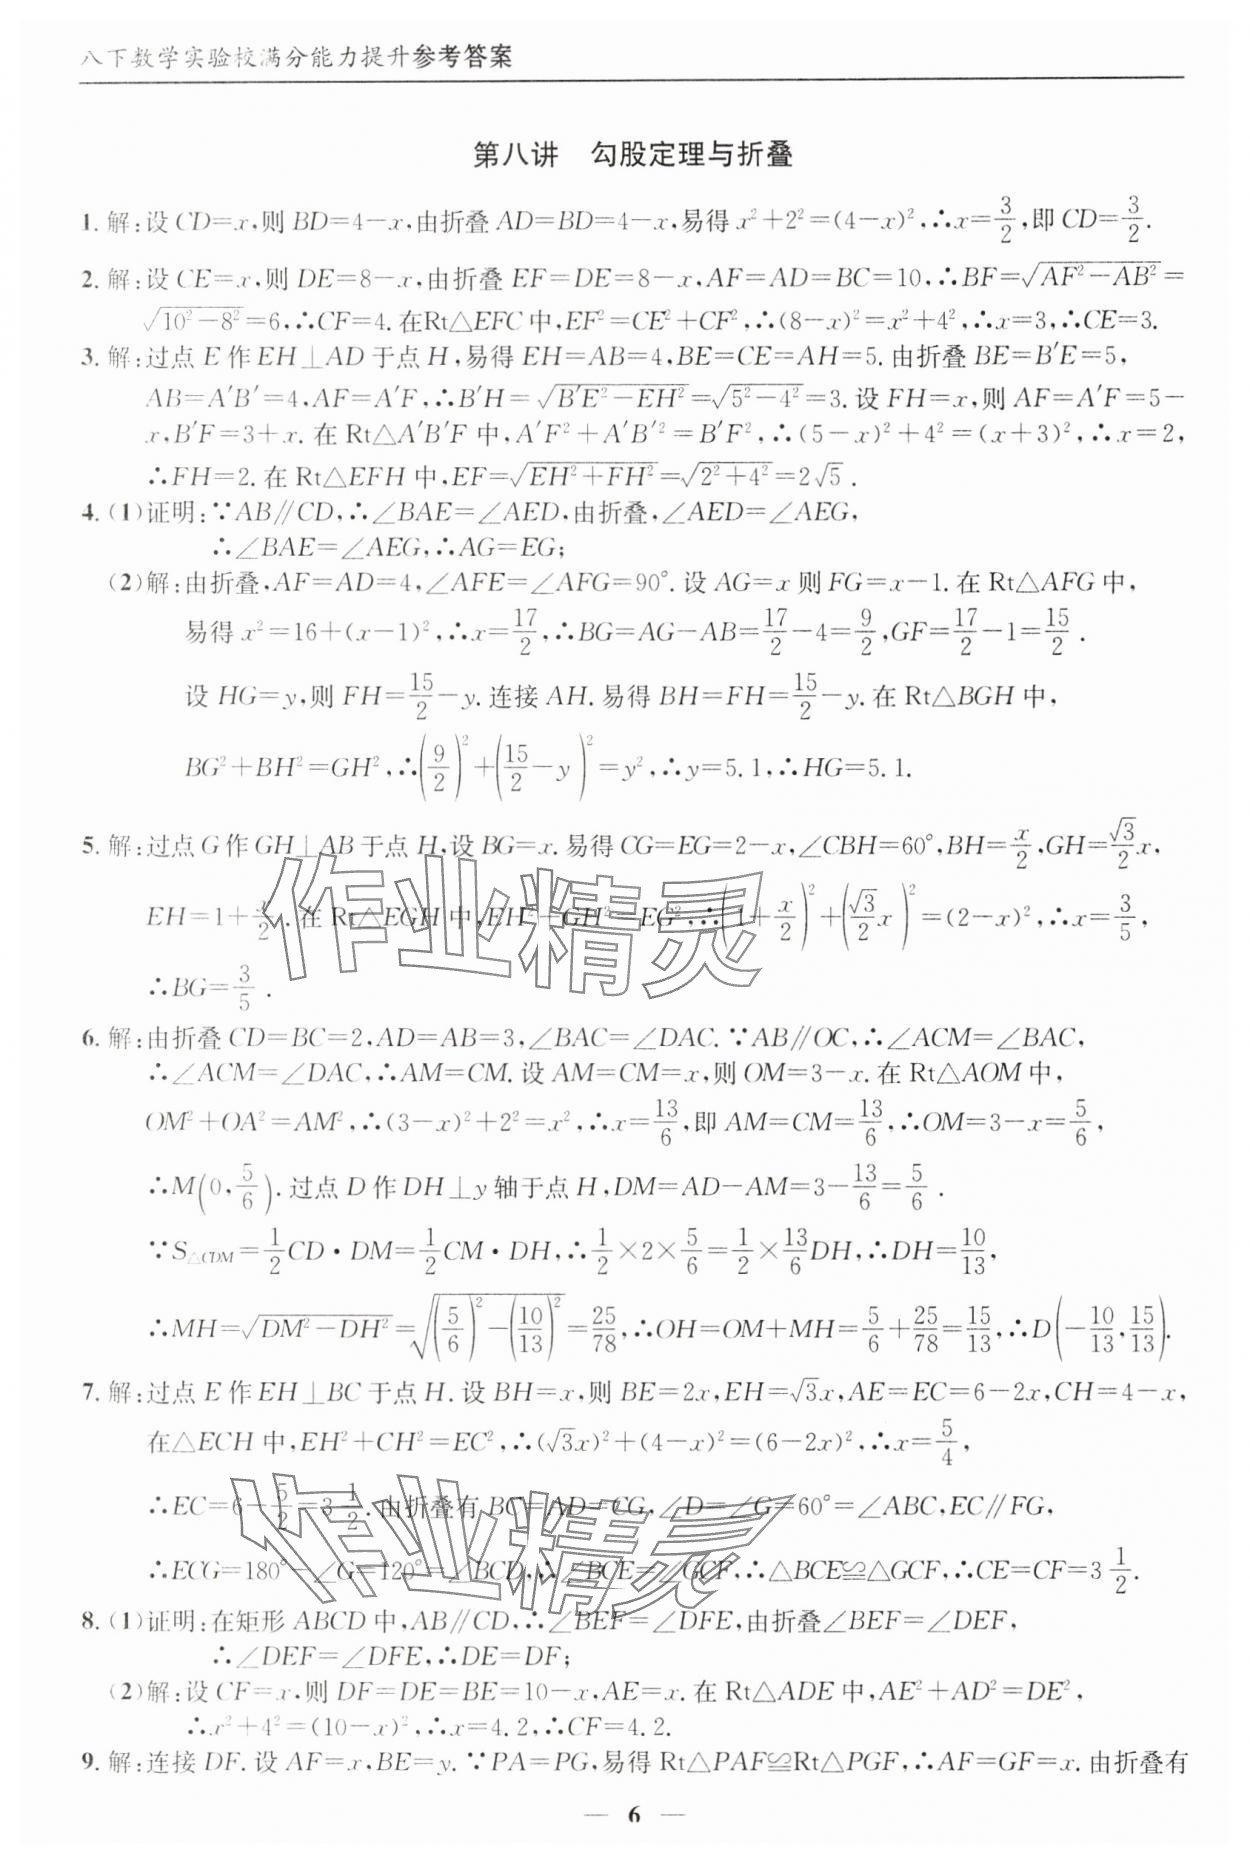 八下数学实验校满分能力提升参考答案
第八讲 勾股定理与折叠
1. 解:设 CD=x,则 BD=4-x,由折叠 AD=BD=4-x,易得 x²+2²=(4-x)²,∴x=3/2,即 CD=3/2.
2. 解:设 CE=x,则 DE=8-x,由折叠 EF=DE=8-x,AF=AD=BC=10,∴BF=√(AF²-AB²)=
√(10²-8²)=6,∴CF=4.在Rt△EFC 中,EF²=CE²+CF²,∴(8-x)²=x²+4²,∴x=3,∴CE=3.
3. 解:过点 E 作 EH⊥AD 于点 H,易得 EH=AB=4,BE=CE=AH=5.由折叠 BE=B′E=5,
AB=A′B′=4,AF=A′F,∴B′H=√(B′E²-EH²)=√(5²-4²)=3.设 FH=x,则 AF=A′F=5-
x,B′F=3+x.在 Rt△A′B′F 中,A′F²+A′B′²=B′F²,∴(5-x)²+4²=(x+3)²,∴x=2,
∴FH=2.在 Rt△EFH 中,EF=√(EH²+FH²)=√(2²+4²)=2√5.
4. (1)证明:∵AB∥CD,∴∠BAE=∠AED,由折叠,∠AED=∠AEG,
∴∠BAE=∠AEG,∴AG=EG;
(2)解:由折叠,AF=AD=4,∠AFE=∠AFG=90°.设 AG=x 则 FG=x-1.在 Rt△AFG 中,
易得 x²=16+(x-1)²,∴x=17/2,∴BG=AG-AB=17/2-4=9/2,GF=17/2-1=15/2.
设 HG=y,则 FH=15/2-y.连接 AH.易得 BH=FH=15/2-y.在 Rt△BGH 中,
BG²+BH²=GH²,∴(9/2)²+(15/2-y)²=y²,∴y=5.1,∴HG=5.1.
5. 解:过点 G 作 GH⊥AB 于点 H,设 BG=x.易得 CG=EG=2-x,∠CBH=60°,BH=x/2,GH=√3/2x,
EH=1+x/2.在 Rt△EGH 中,EH²+GH²=EG²,∴(1+x/2)²+(√3/2x)²=(2-x)²,∴x=3/5,
∴BG=3/5.
6. 解:由折叠 CD=BC=2,AD=AB=3,∠BAC=∠DAC.∵AB∥OC,∴∠ACM=∠BAC,
∴∠ACM=∠DAC,∴AM=CM.设 AM=CM=x,则 OM=3-x.在 Rt△AOM 中,
OM²+OA²=AM²,∴(3-x)²+2²=x²,∴x=13/6,即 AM=CM=13/6,∴OM=3-x=5/6,
∴M(0,5/6).过点 D 作 DH⊥y 轴于点 H,DM=AD-AM=3-13/6=5/6.
∵S△CDM=1/2CD·DM=1/2CM·DH,∴1/2×2×5/6=1/2×13/6DH,∴DH=10/13,
∴MH=√(DM²-DH²)=√((5/6)²-(10/13)²)=25/78,∴OH=OM+MH=5/6+25/78=15/13,∴D(-10/13,15/13).
7. 解:过点 E 作 EH⊥BC 于点 H.设 BH=x,则 BE=2x,EH=√3x,AE=EC=6-2x,CH=4-x,
在△ECH 中,EH²+CH²=EC²,∴(√3x)²+(4-x)²=(6-2x)²,∴x=5/4,
∴EC=6-5/2=3 1/2.由折叠有 BC=AD=CG,∠D=∠G=60°=∠ABC,EC∥FG,
∴ECG=180°-∠G=120°=∠BCD,∴∠BCE=∠GCF,∴△BCE≌△GCF,∴CE=CF=3 1/2.
8. (1)证明:在矩形 ABCD 中,AB∥CD,∴∠BEF=∠DFE,由折叠∠BEF=∠DEF,
∴∠DEF=∠DFE,∴DE=DF;
(2)解:设 CF=x,则 DF=DE=BE=10-x,AE=x.在 Rt△ADE 中,AE²+AD²=DE²,
∴x²+4²=(10-x)²,∴x=4.2,∴CF=4.2.
9. 解:连接 DF.设 AF=x,BE=y.∵PA=PG,易得 Rt△PAF≌Rt△PGF,∴AF=GF=x.由折叠有
— 6 —
作业精灵
作业精灵